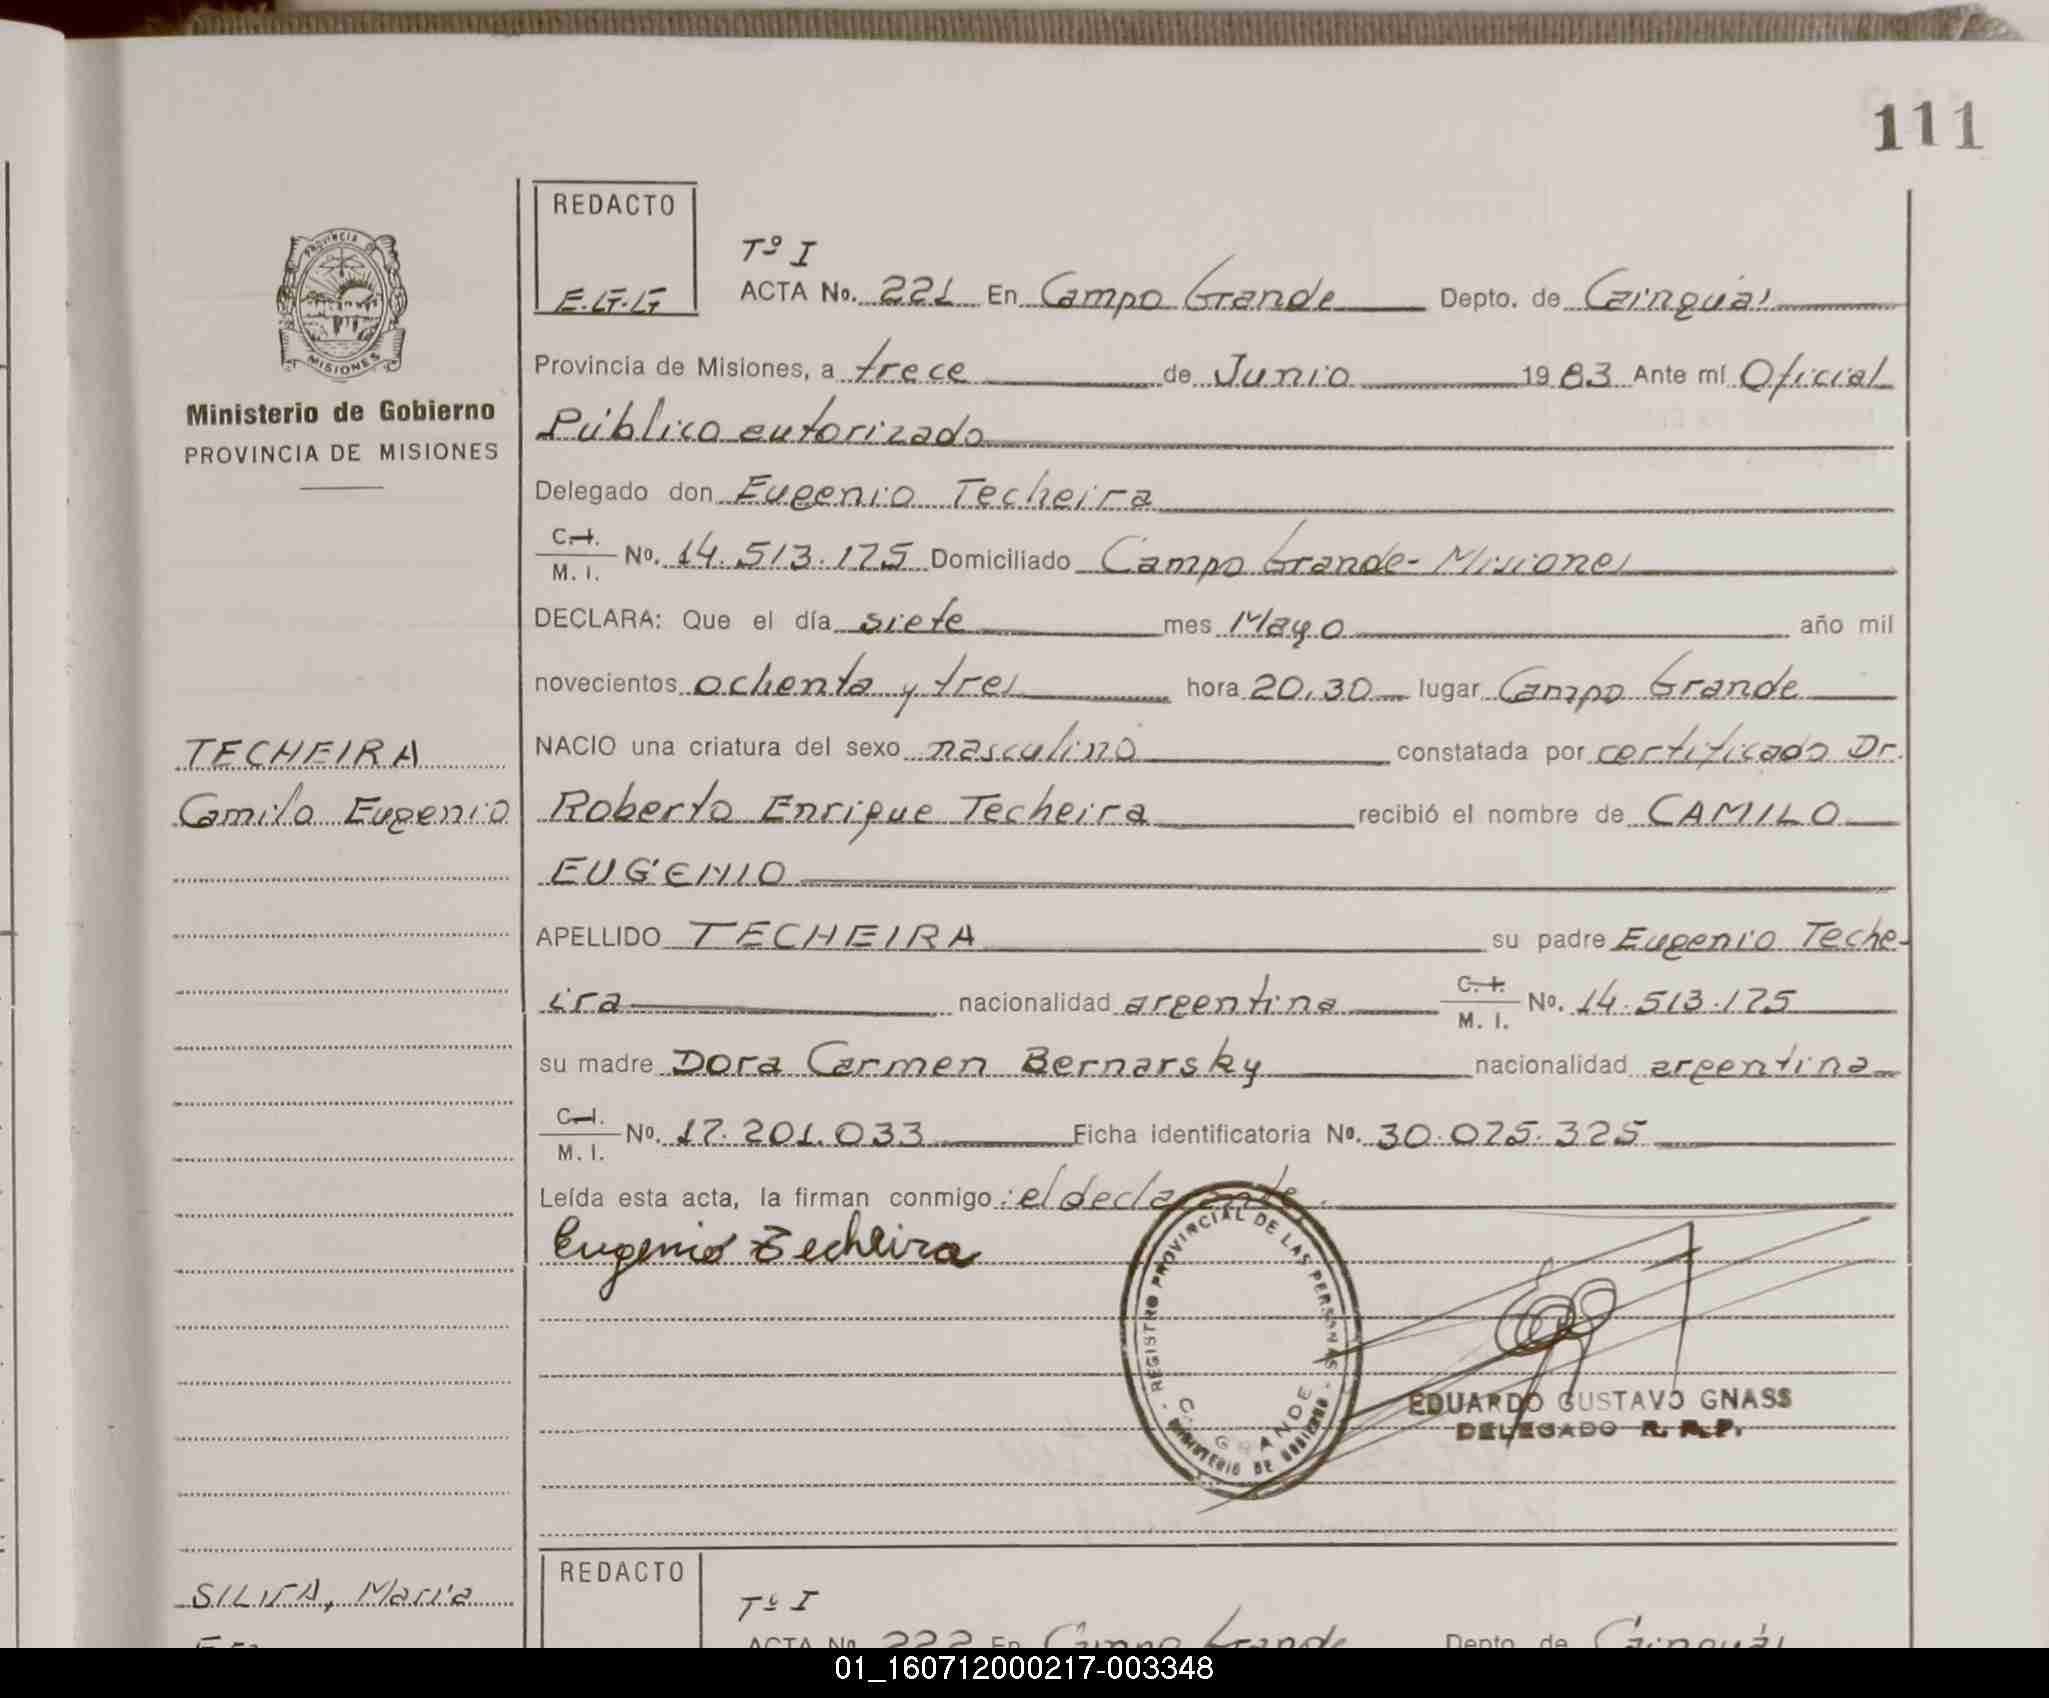 111
REDACTO
E.G.G
Tº I
ACTA No. 221 En Campo Grande Depto. de Cainguás
Provincia de Misiones, a trece de Junio 1983 Ante mí Oficial
Público autorizado
Delegado don Eugenio Techeira
C.I. M. I. No. 14.513.175 Domiciliado Campo Grande-Misiones
DECLARA: Que el día siete mes Mayo año mil
novecientos ochenta y tres hora 20,30 lugar Campo Grande
NACIO una criatura del sexo masculino constatada por certificado Dr.
Roberto Enrique Techeira recibió el nombre de CAMILO
EUGENIO
APELLIDO TECHEIRA su padre Eugenio Teche-
ira nacionalidad argentina C.I. M. I. No. 14.513.175
su madre Dora Carmen Bernarsky nacionalidad argentina
C.I. M. I. No. 17.201.033 Ficha identificatoria No. 30.075.325
Leída esta acta, la firman conmigo: el declarante.
Eugenio Techeira
REGISTRO PROVINCIAL DE LAS PERSONAS
GRANDE
MINISTERIO DE GOBIERNO
EDUARDO GUSTAVO GNASS
DELEGADO R. P. P.
PROVINCIA
MISIONES
Ministerio de Gobierno
PROVINCIA DE MISIONES
TECHEIRA
Camilo Eugenio
SILVA, Maria
REDACTO
Tº I
ACTA No. 222 En Campo Grande Depto. de Cainguás
01_160712000217-003348